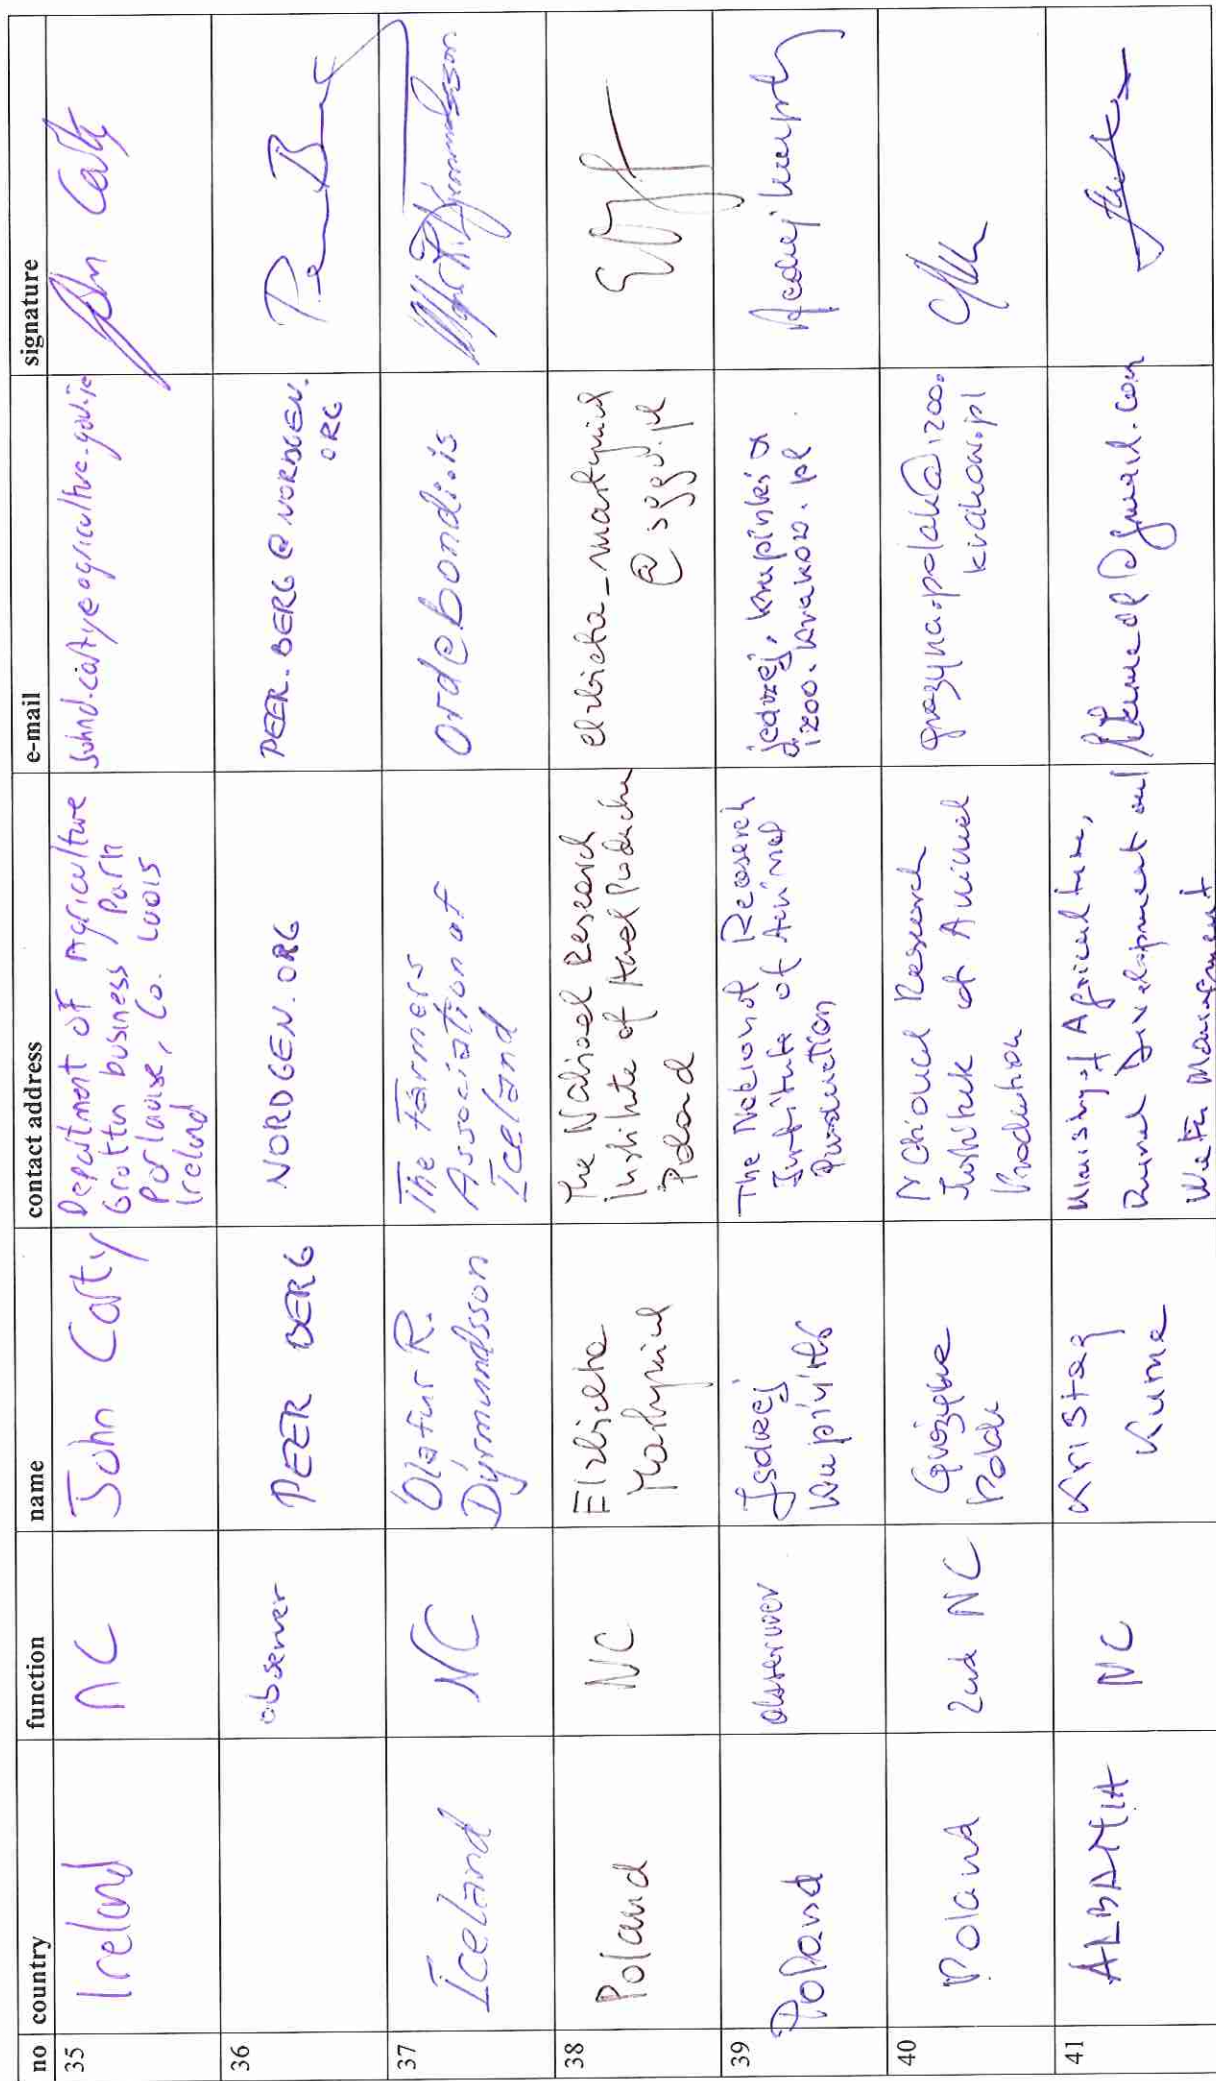 no country function name contact address e-mail signature
35 Ireland NC John Carty Department of Agriculture
Grattan business Park
Portlaoise, Co. Laois
Ireland
johnd.carty@agriculture.gov.ie John Carty
36 observer PEER BERG NORDGEN.ORG PEER.BERG@NORDGEN.
ORG
37 Iceland NC Ólafur R.
Dýrmundsson
The Farmers
Association of
Iceland
ord@bondi.is Ólafur R. Dýrmundsson
38 Poland NC Elżbieta
Martyniuk
The National Research
Institute of Animal Production
Poland
elzbieta_martyniuk
@sggw.pl
39 Poland observer Jędrzej
Krupiński
The National Research
Institute of Animal
Production
jedrzej.krupinski@
izoo.krakow.pl.
40 Poland 2nd NC Grażyna
Polak
National Research
Institute of Animal
Production
grazyna.polak@izoo.
krakow.pl
41 ALBANIA NC Kristaq
Kume
Ministry of Agriculture,
Rural Development and
Water Management